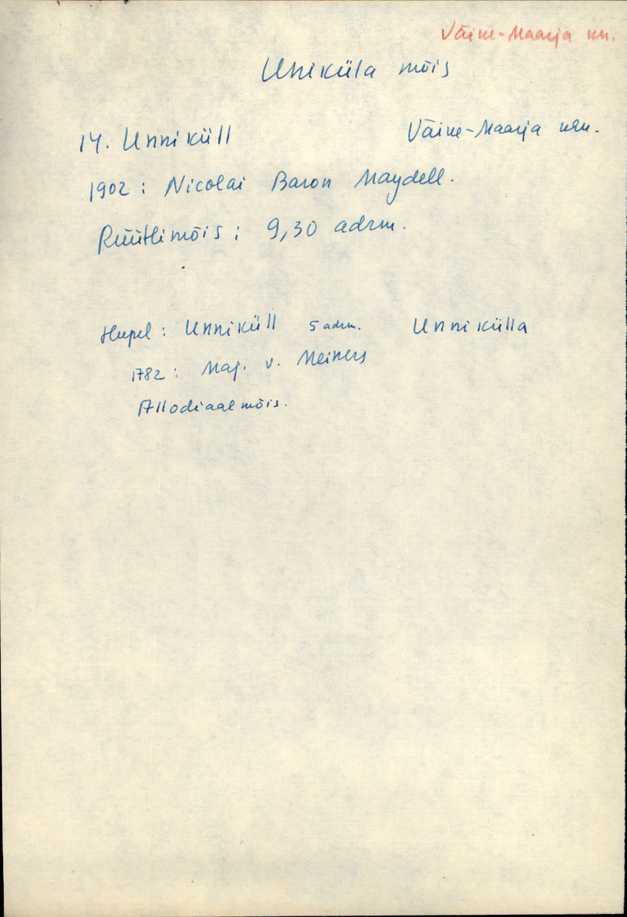 Väike-Maarja khn.
Uniküla mõis
14. Unniküll Väike-Maarja khn.
1902: Nicolai Baron Maydell.
Rüütlimõis: 9,30 adrm.
Hupel: Unniküll 5 adrm. Unnikülla
1782: Maj. v. Meiners
Allodiaalmõis.